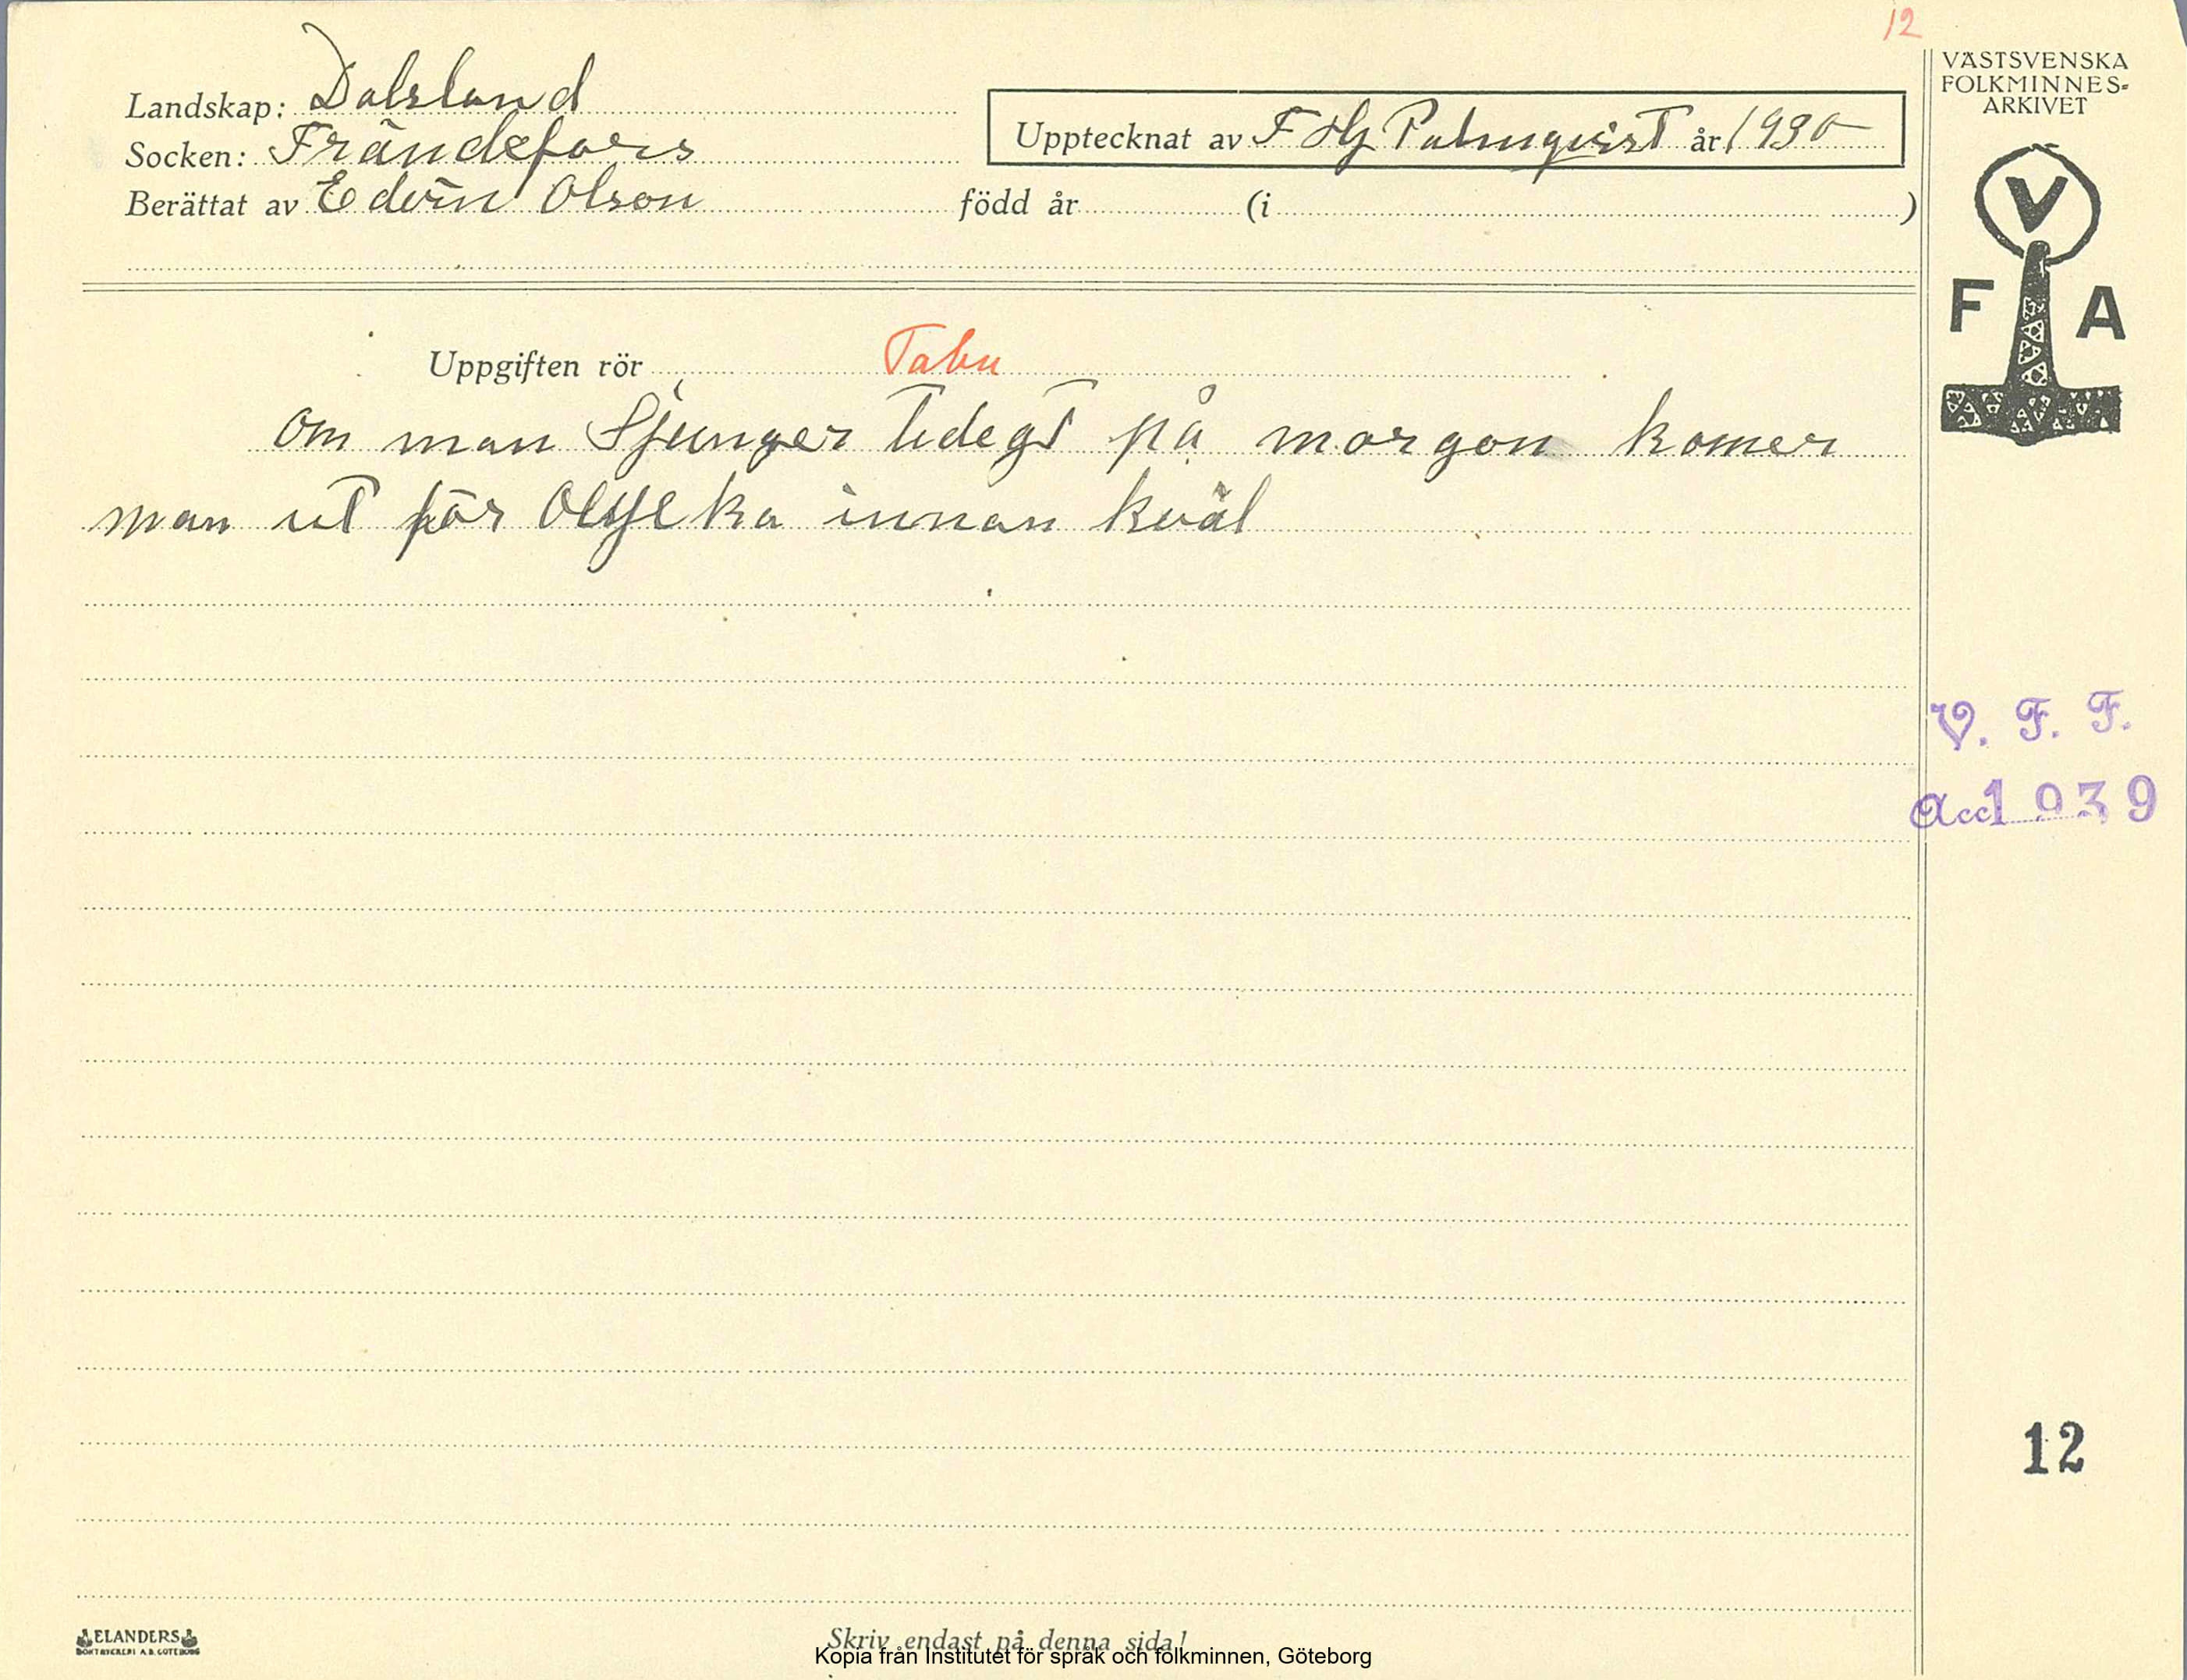 12
VÄSTSVENSKA
FOLKMINNES-
ARKIVET
Landskap: Dalsland
Socken: Frändefors
Upptecknat av F Hj Palmqvist år 1930
Berättat av Edvin Olson född år (i )
V
F A
Uppgiften rör Tabu
Om man Sjunger tidegt på morgon komer
man ut för Olyeka innan kväl
V. F. F.
Acc 1939
12
ELANDERS
BOKTRYCKERI A.B. GÖTEBORG
Skriv endast på denna sida!
Kopia från Institutet för språk och folkminnen, Göteborg